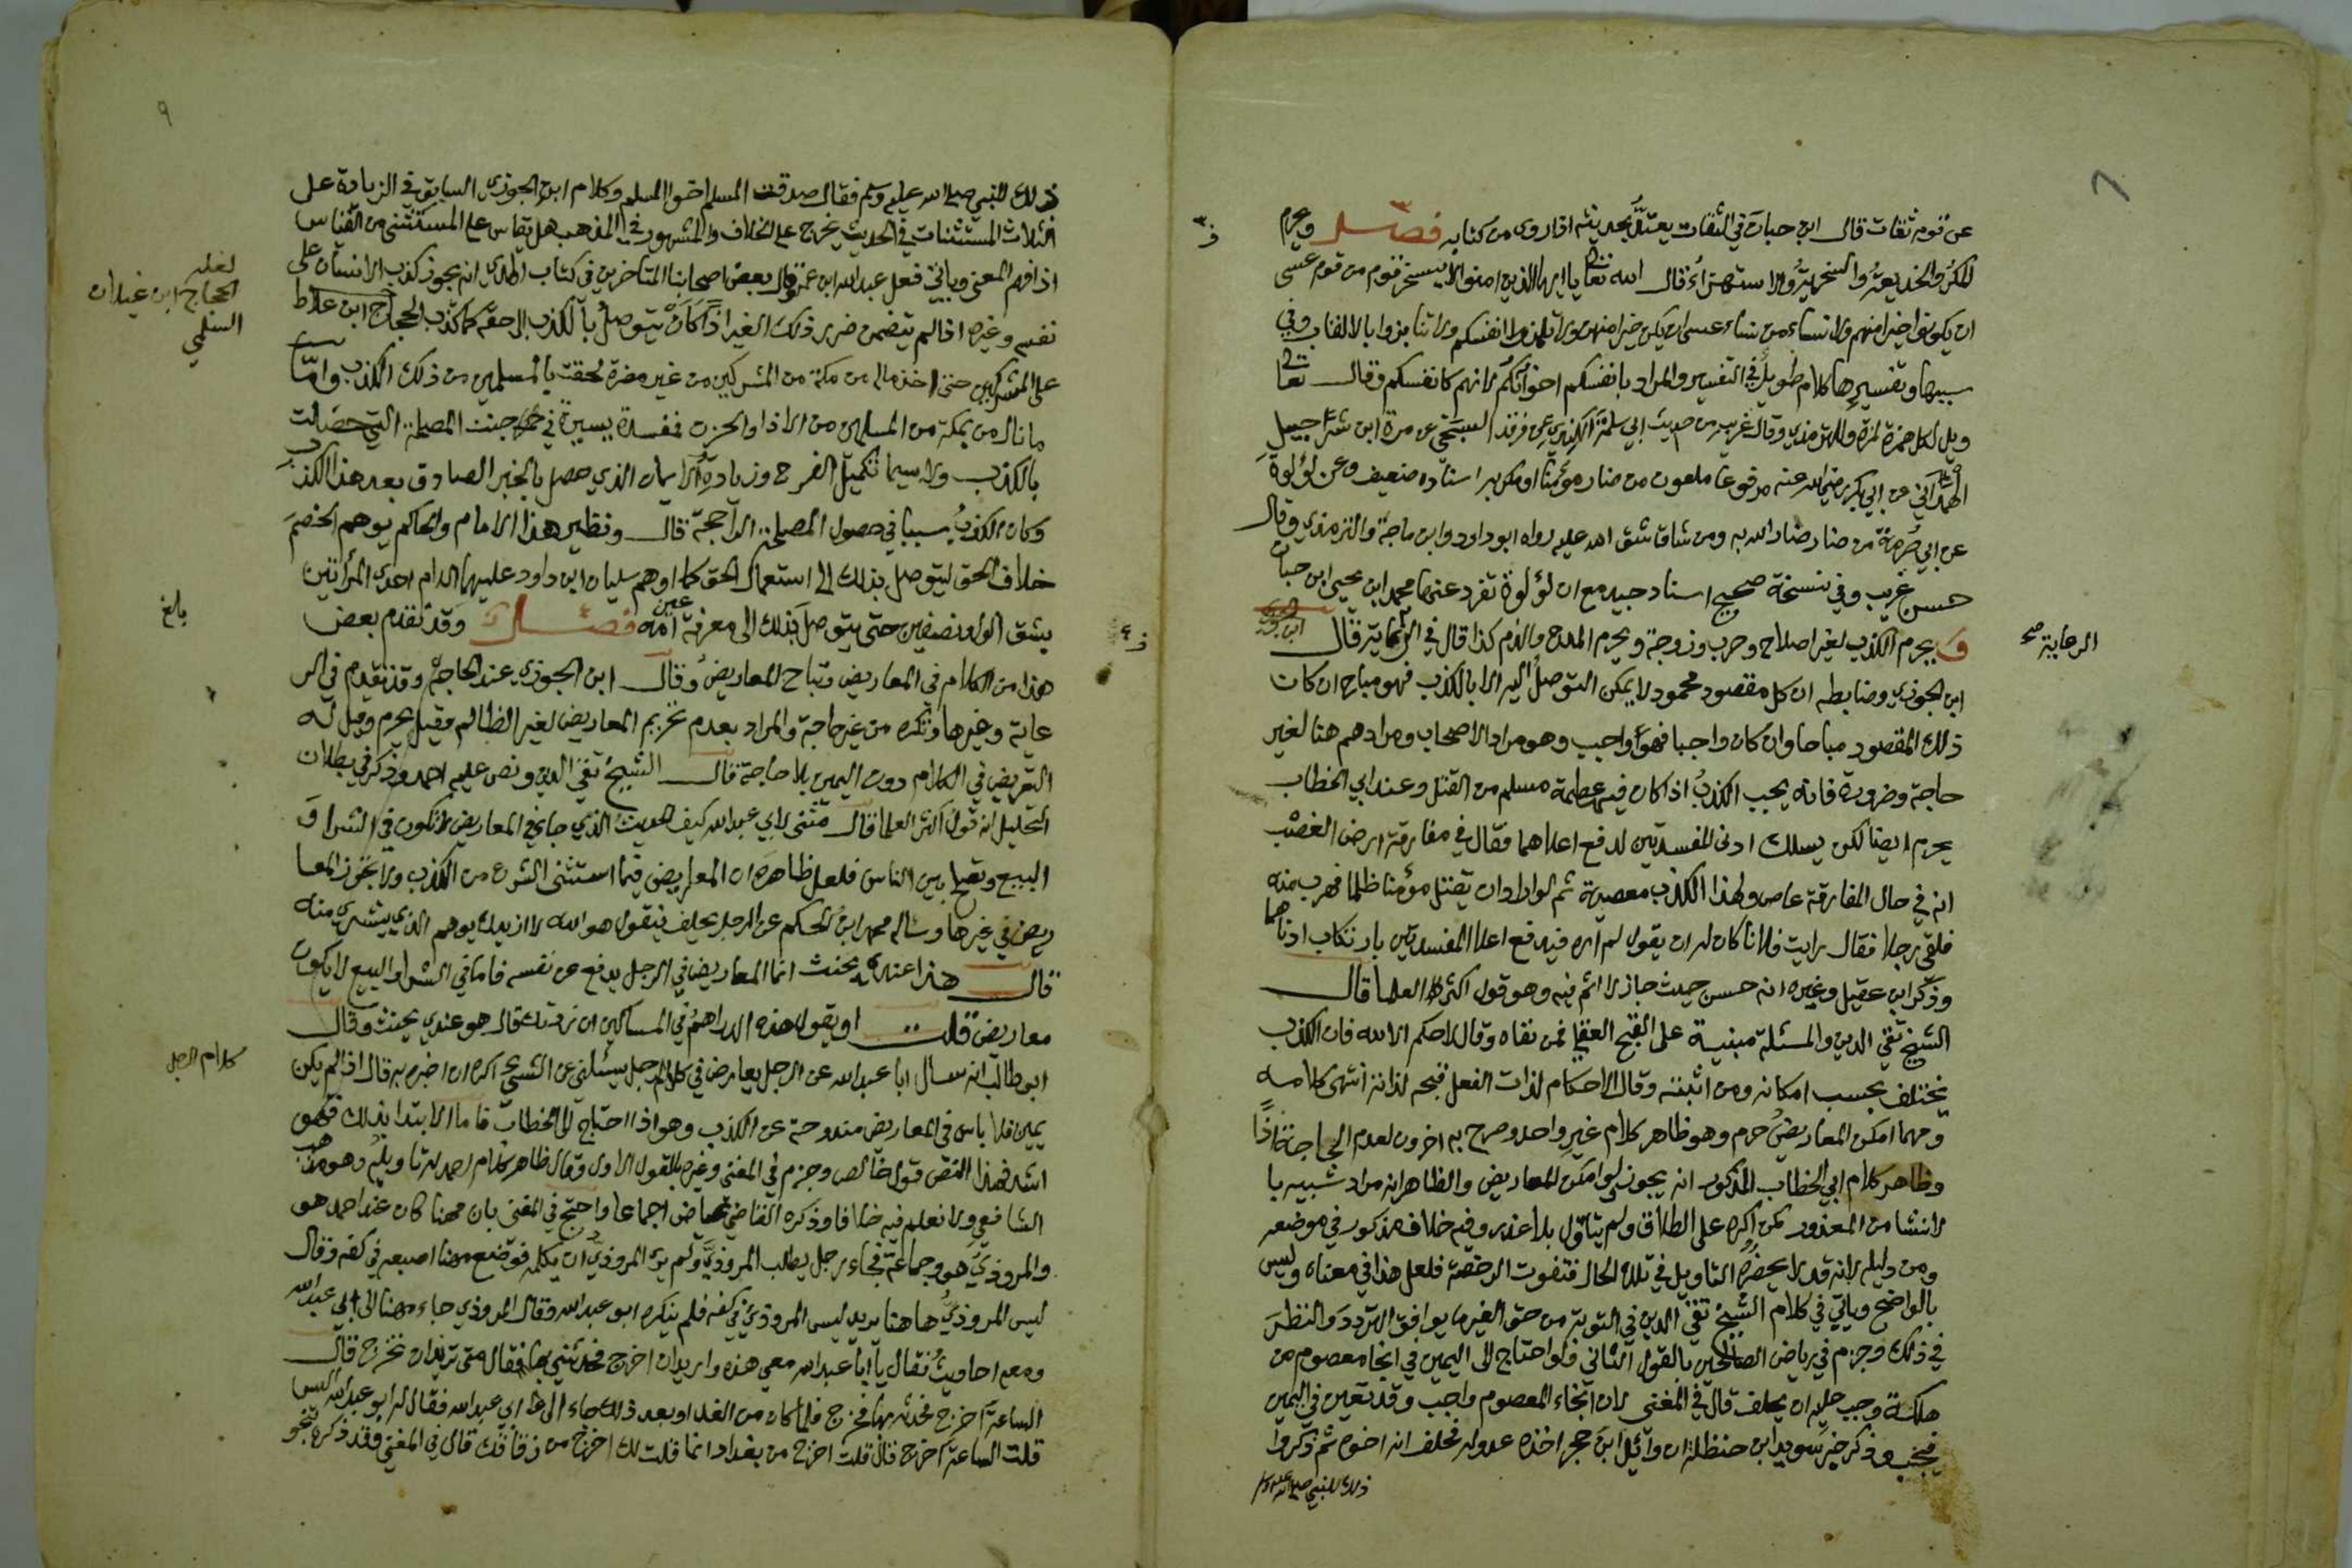 عن قوم ثقات قال ابن حبان في الثقات يعتد بحديثه اذا روى من كتابه فصل ويحرم
المكر والخديعة والسخرية والاستهزاء قال الله تعالى يا ايها الذين امنوا لا يسخر قوم من قوم عسى
ان يكونوا خيرا منهم ولا نساء من نساء عسى ان يكن خيرا منهن ولا تلمزوا انفسكم ولا تنابزوا بالالقاب وفي
سببها وتفسيرها كلام طويل في التفسير والمراد بانفسكم اخوانكم لانهم كانفسكم وقال تعالى
ويل لكل همزة لمزة وللترمذي وقال غريب من حديث ابي سلمة الكندي عن فرقد السبخي عن مرة ابن شراحيل
الهمداني عن ابي بكر رضي الله عنه مرفوعا ملعون من ضار مؤمنا او مكر به اسناده ضعيف وعن لؤلؤة
عن ابي صرمة من ضار ضار الله به ومن شاق شق الله عليه رواه ابو داود وابن ماجة والترمذي وقال
حسن غريب وفي نسخة صحيح اسناد جيد مع ان لؤلؤة تفرد عنها محمد ابن يحيى ابن حبان
ويحرم الكذب لغير اصلاح وحرب وزوجة ويحرم المدح والذم كذا قال في الرعاية قال
الرعاية صح
ابن الجوزي وضابطه ان كل مقصود محمود لا يمكن التوصل اليه الا بالكذب فهو مباح ان كان
ذلك المقصود مباحا وان كان واجبا فهو واجب وهو مراد الاصحاب ومرادهم هنا لغير
حاجة وضرورة فانه يجب الكذب اذا كان فيه عصمة مسلم من القتل وعند ابي الخطاب
يحرم ايضا لكن يسلك ادنى المفسدتين لدفع اعلاهما فقال في مفارقة ارض الغصب
انه في حال المفارقة عاص ولهذا الكذب معصية ثم لو اراد ان يقتل مؤمنا ظلما فهرب منه
فلقي رجلا فقال رايت فلانا كان له ان يقول لم اره فيدفع اعلا المفسدتين بارتكاب ادناهما
وذكر ابن عقيل وغيره انه حسن حيث جاز لا اثم فيه وهو قول اكثر العلما قال
الشيخ تقي الدين والمسئلة مبنية على القبح العقلي فمن نفاه وقال لا حكم الا لله فان الكذب
يختلف بحسب امكانه ومن اثبته وقال الاحكام لذات الفعل قبحه لذاته انتهى كلامه
ومهما امكن المعاريض حرم وهو ظاهر كلام غير واحد وصرح به اخرون لعدم الحاجة اذا
وظاهر كلام ابي الخطاب المذكور انه يجوز ولو امكن المعاريض والظاهر انه مراد شبيه با
لانشا من المعذور كمن اكره على الطلاق ولم يتاول بلا عذر وفيه خلاف مذكور في موضعه
ومن دليله لانه قد لا يحضره التاويل في تلك الحال فتفوت الرخصة فلعل هذا في معناه وليس
بالواضح وياتي في كلام الشيخ تقي الدين في التوبة من حق الغير ما يوافق التردد والنظر
في ذلك وجزم في رياض الصالحين بالقول الثاني فلو احتاج الى اليمين في انجا معصوم من
هلكة وجب عليه ان يحلف قال في المغني لان انجاء المعصوم واجب وقد تعين في اليمين
فيجب وذكر خبر سويد ابن حنظلة ان وائل ابن حجر اخذه عدو له فحلف انه اخوه ثم ذكروا
ذلك للنبي صلى الله عليه وسلم
٩
ذلك للنبي صلى الله عليه وسلم فقال صدقت المسلم اخو المسلم وكلام ابن الجوزي السابق في الزيادة على
الثلاث المستثنات في الحديث يخرج على الخلاف والمشهور في المذهب هل يقاس على المستثنى من القياس
اذا فهم المعنى وياتي فعل عبد الله ابن عمر وقال بعض اصحابنا المتاخرين في كتاب الهدي انه يجوز كذب الانسان على
نفسه وغيره اذا لم يتضمن ضرر ذلك الغير اذا كان يتوصل بالكذب الى حقه كما كذب الحجاج ابن علاط
لعله
الحجاج ابن غيلان
السلمي
على المشركين حتى اخذ ماله من مكة من المشركين من غير مضرة لحقت بالمسلمين من ذلك الكذب واما
ما نال من بمكة من المسلمين من الاذا والحزن فمفسدة يسيرة في جنب المصلحة التي حصلت
بالكذب ولا سيما تكميل الفرح وزيادة الايمان الذي حصل بالخبر الصادق بعد هذا الكذب
وكان الكذب سببا في حصول المصلحة الراجحة قال ونظير هذا الامام والحاكم يوهم الخصم
خلاف الحق ليتوصل بذلك الى استعمال الحق كما اوهم سليمان ابن داود عليهما السلام احدى المرأتين
بشق الولد نصفين حتى يتوصل بذلك الى معرفة عين امه فصل وقد تقدم بعض
بلغ
هذا من الكلام في المعاريض وتباح المعاريض وقال ابن الجوزي عند الحاجة وقد تقدم في الر
عاية وغيرها وتكره من غير حاجة والمراد بعدم تحريم المعاريض لغير الظالم وقيل يحرم وقيل له
التعريض في الكلام دون اليمين بلا حاجة قال الشيخ تقي الدين ونص عليه احمد وذكر في بطلان
التحليل انه قول اكثر العلما قال مثنى لابي عبد الله كيف الحديث الذي جا في المعاريض لا تكون في الشرا و
البيع وتصلح بين الناس فلعل ظاهره ان المعاريض فيما استثنى الشرع من الكذب ولا تجوز المعا
ريض في غيرها وساله محمد ابن الحكم عن الرجل يحلف فيقول هو الله لا ازيدك يوهم الذي يشتري منه
قال هذا عندي يحنث انما المعاريض في الرجل يدفع عن نفسه فاما في الشرا والبيع لا يكون
معاريض قلت او يقول هذه الدراهم في المساكين ان زدتك قال هو عندي يحنث وقال
ابو طالب انه سال ابا عبد الله عن الرجل يعارض في كلام الرجل يسئلني عن الشيء اكره ان اخبره به قال اذا لم يكن
كلام الرجل
يمين فلا باس في المعاريض مندوحة عن الكذب وهو اذا احتاج الى الخطاب فاما الابتدا بذلك فهو
اشد فهذا النص قول خالص وجزم في المغني وغيره بالقول الاول وقال ظاهر كلام احمد له تاويله وهو مذهب
الشافعي ولا نعلم فيه خلافا وذكره القاضي عياض اجماعا واحتج في المغني بان مهنا كان عند احمد هو
والمروذي هو وجماعة فجاء رجل يطلب المروذي ولم يرد المروذي ان يكلمه فوضع مهنا اصبعه في كفه وقال
ليس المروذي هاهنا يريد ليس المروذي في كفه فلم ينكره ابو عبد الله وقال المروذي جاء مهنا الى ابي عبد الله
ومعه احاديث فقال يا ابا عبد الله معي هذه واريد ان اخرج فحدثني بها فقال متى تريد ان تخرج قال
الساعة اخرج فحدثه بها فخرج فلما كان من الغد او بعد ذلك جاء الى ابي عبد الله فقال له ابو عبد الله اليس
قلت الساعة اخرج قال قلت اخرج من بغداد انما قلت لك اخرج من زقاقك قال في المغني وقد ذكره بنحو